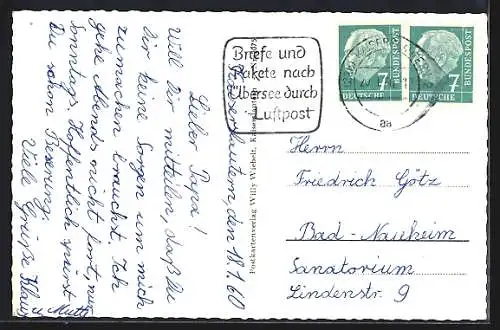 Kaiserslautern, den 18.1.60
Lieber Papa!
Will Dir mitteilen, daß Du
Dir keine Sorgen um mich
zu machen brauchst. Ich
gehe Abends nicht fort, nur
Sonntags. Hoffentlich spürst
Du schon Besserung.
Viele Grüße Klaus
u. Mutti
Postkartenverlag Willy Wiebelt, Kaiserslautern
Briefe und
Pakete nach
Übersee durch
Luftpost
aa
7
DEUTSCHE
BUNDESPOST
7
DEUTSCHE
BUNDESPOST
Herrn
Friedrich Götz
Bad-Nauheim
Sanatorium
Lindenstr. 9